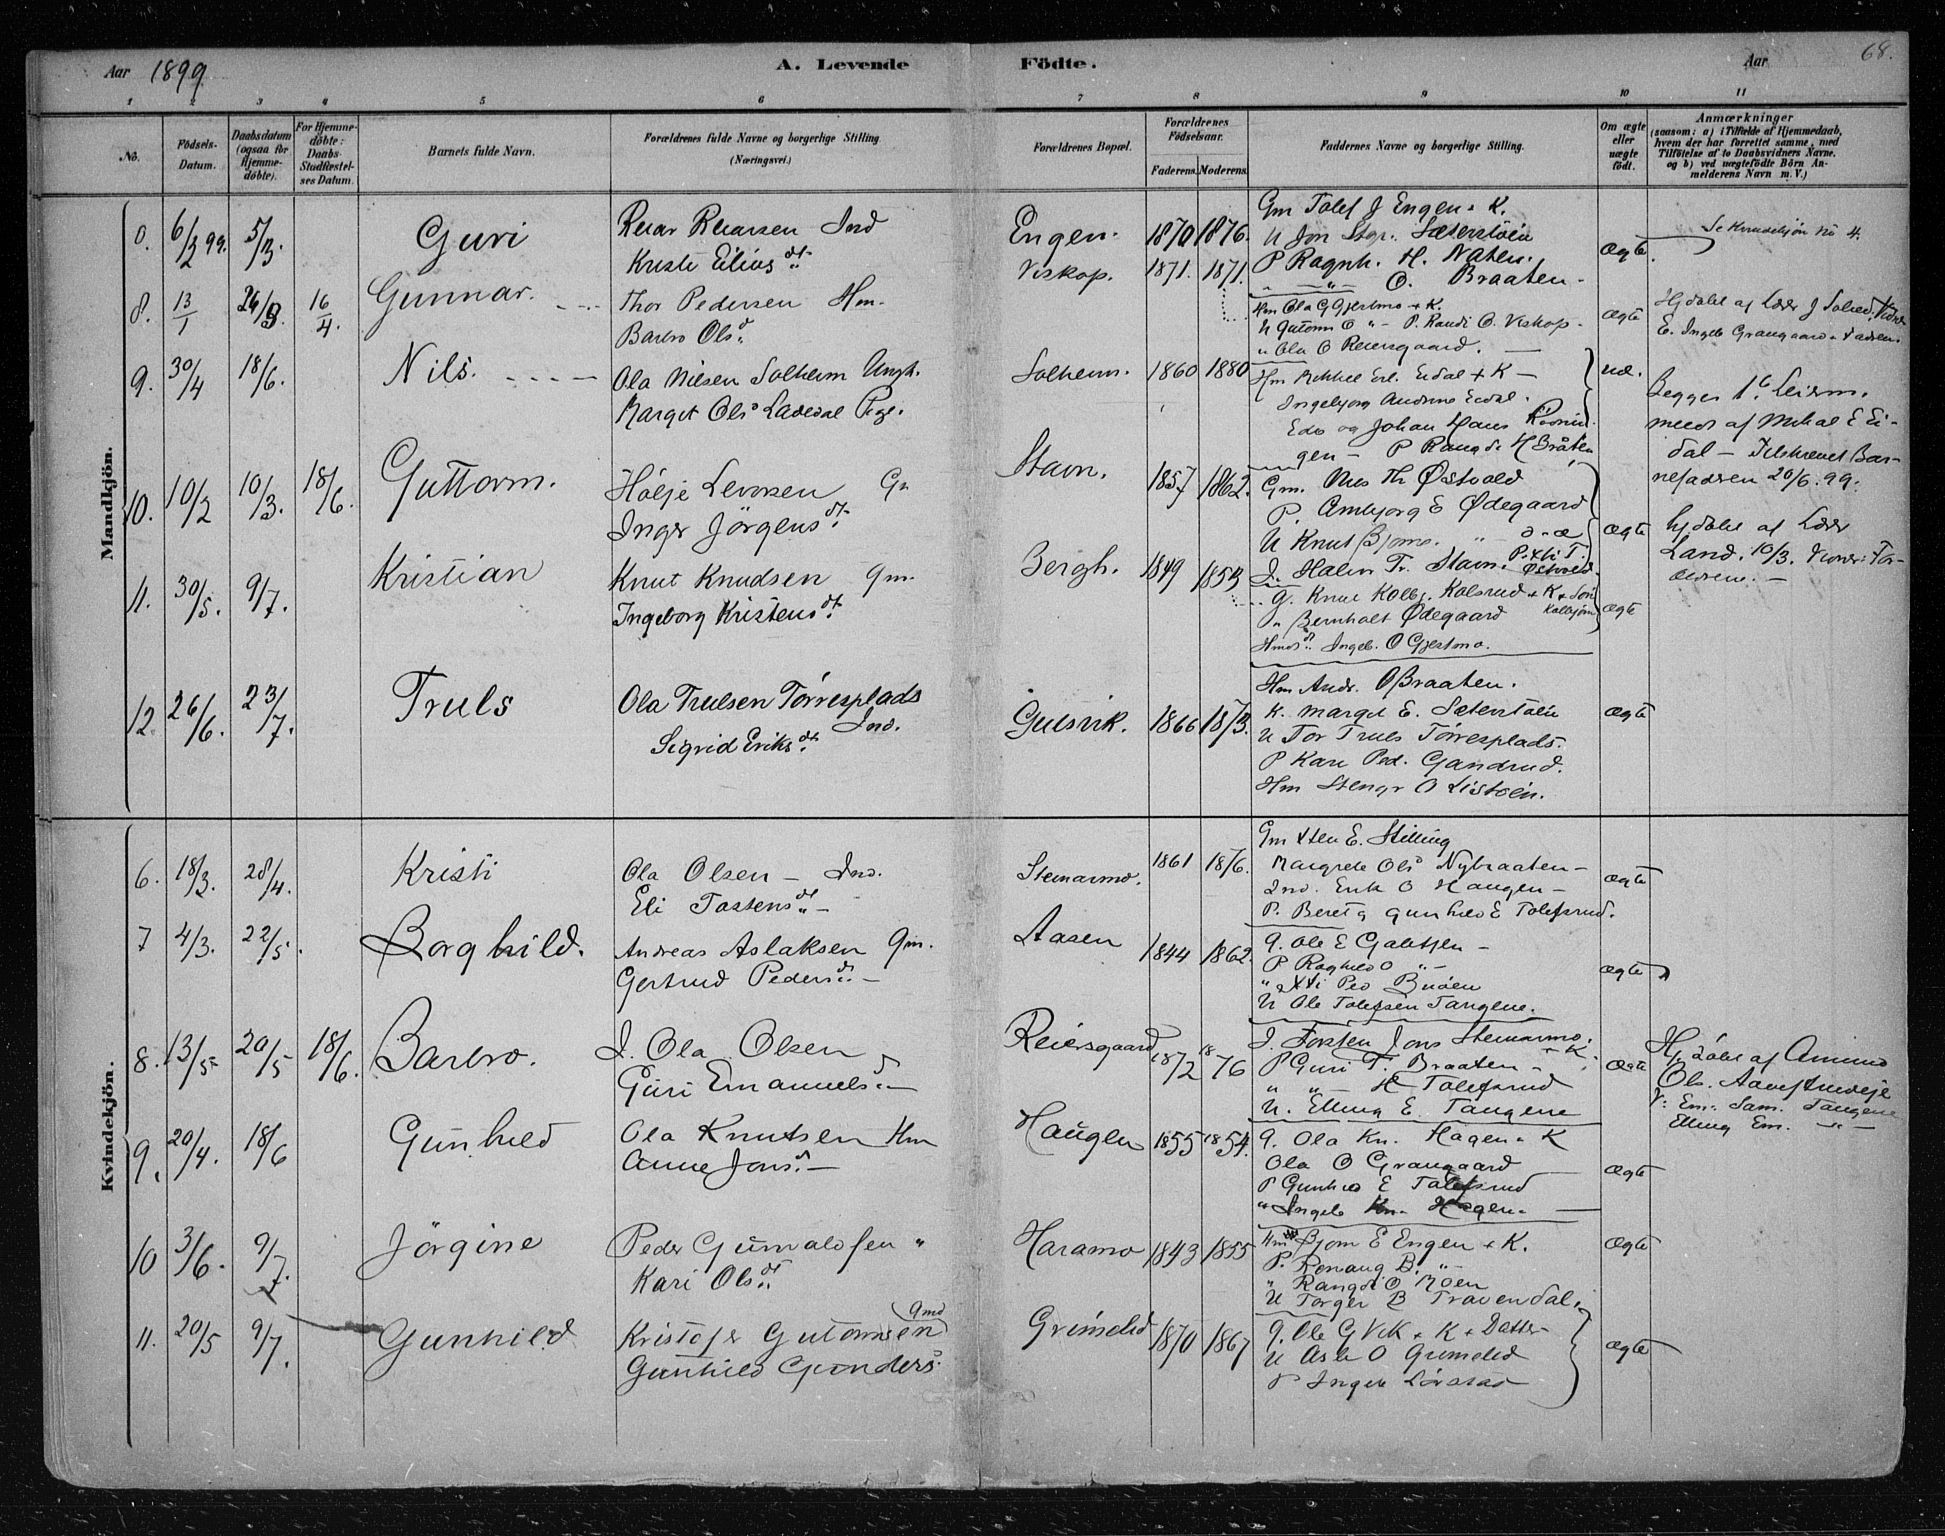 Aar 1899
A. Levende Födte.
Aar
68.
1 2 3 4 5 6 7 8 9 10 11
No.
Födsels-Datum.
Daabsdatum (ogsaa for Hjemme-döbte).
For Hjemme-döbte: Daabs-Stadfæstel-ses Datum.
Barnets fulde Navn.
Forældrenes fulde Navne og borgerlige Stilling (Næringsvei.)
Forældrenes Bopæl.
Forældrenes Födselsaar.
Faderens. Moderens.
Faddernes Navne og borgerlige Stilling.
Om ægte eller uægte födt.
Anmærkninger
(saasom: a) i Tilfælde af Hjemmedaab,
hvem der har forrettet samme, med
Tilföielse af to Daabsvidners Navne.
og b) ved uægtefödte Börn An-
melderens Navn m. V.)
Mandkjön.
0. 6/2 99. 5/3. Guri
Reiar Reiarsen Ind
Kristi Eilias dt.
Engen. 1870 1876.
Gm Tolef J Engen + K.
U Jon Stgr. Sæterstöen
P Ragnh. H. Naten.
" " O. Braaten
Ægte
Se Kvindekjön No 4.
8. 13/1 26/3. 16/4. Gunnar.
Thor Pedersen Hm.
Barbro Olsd.
Viskop. 1871. 1871.
Hm Ola G Gjestmo + K.
U Gutorm O " P. Randi O. Viskop.
" Ola O Reiersgaard.
Ægte
Hjdöbt af Lærer J Solied. Vidner
E. Ingeb Grangaard + Fadren.
9. 30/4 18/6. Nils.
Ola Nilsen Solheim Ungk.
Margit Olsd Ladedal Pige.
Solheim. 1860 1880
Hm Mekkel Erl. Eidal + K
Ingebjorg Andrine Eidal.
Edv og Johan Hans
gen P Rangdi H Bråten
uæ.
Begges 1ste Leierm.
meldt af Mikal E Ei-
dal Tilskrevet Bar-
nefadren 20/6. 99.
10. 10/2 10/3. 18/6. Guttorm.
Hölje Levorsen G.
Inger Jörgensdt.
Stavn. 1857 1862.
Gm. Nils Th Østvold
P. Ambjorg E Ødegaard
U Knut Bjorn.
I. Halvor Tr. Stavn. P. Kti T. Østvold.
Ægte
hjdöbt af Lærer
Land. 10/3. Vidner: For-
ældrene.
11. 30/5. 9/7. Kristian
Knut Knudsen Gm.
Ingeborg Kristensdt.
Bergh. 1849 1853
G. Knut Kolbj. Kolsrud + K + Sön Kolbjörn
P. Bernholt Ødegaard
Hmds. Ingeb. O Gjestmo.
Ægte
12. 26/6. 23/7. Truls
Ola Trulsen Törresplads Ind.
Sigrid Eriksdt.
Gulsvik. 1866 1873.
Hm Andr. O Braaten.
K. Margit E. Sæterstöen
U Tor Truls Törresplads.
P Kari Ped. Gandrud.
Hm Stengr O Listöen.
Ægte
Kvindekjön.
6. 18/3. 28/4. Kristi
Ola Olsen Ind.
Eli Tostensdt.
Steinarmo. 1861 1876.
Gm Xten E. Stilling
Margrete Olsd Nybraaten
Ind. Erik O Haugen
P. Berit & Gunhild E Tolefsrud.
Ægte
7 4/3. 22/5. Borghild.
Andreas Aslaksen Gm.
Gertrud Pedersd.
Aasen 1844 1862.
G. Ole E Galtsjen
P Raghild O "
" Xti Ped Bröen
U Ole Tolefsen Tangene.
Ægte
8. 13/5 20/5 18/6. Barbro.
I. Ola Olsen
Guri Emanuelsd.
Reiersgaard 1872 1876
I. Torsten Jons Steinarmo. + K.
P Guri T. Braaten
" " H Tolefsrud
U. Elling E. Tangene
Ægte
Hj. döbt af Amund
Ols. Aavestrudeje
V: Em. Sam. Tangene
Elling Em. "
9. 20/4. 18/6 Gunhild
Ola Knutsen Hm
Anne Jonsd.
Haugen 1855 1854.
G. Ola Kn. Hagen + K
Ola O Grangaard
P Gunhild E Tolefsrud
" Ingeb Kn. Hagen.
Ægte
10 3/6. 9/7. Jörgine
Peder Gunvaldsen "
Kari Olsdt.
Haramo 1843 1855
Hm Bjorn E Engen + K.
P. Ronaug B. "
" Rangdi O Moen
U Torger B Travendal.
Ægte
11. 20/5 9/7. Gunhild
Kristofer Gutormsen Gmd
Gunhild Gundersd.
Grimelid 1870 1867
G. Ole G Vik + K + Datter
U Asle O Grimelid
P Ingeb Lörstad
Ægte